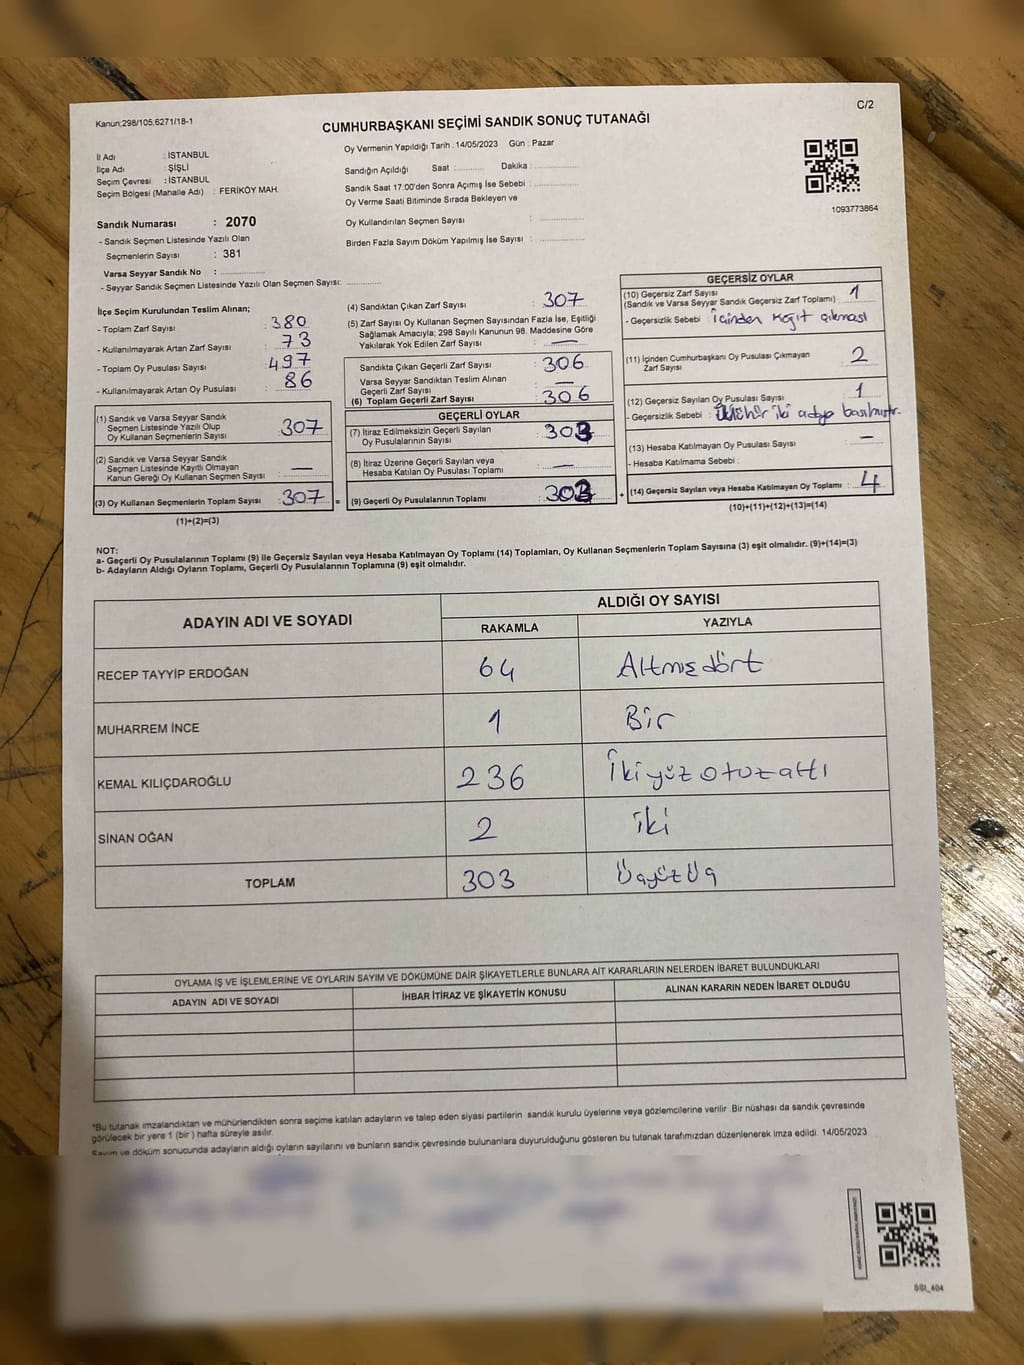 Kanun;298/105;6271/18-1
C/2
CUMHURBAŞKANI SEÇİMİ SANDIK SONUÇ TUTANAĞI
İl Adı : İSTANBUL
İlçe Adı : ŞİŞLİ
Seçim Çevresi : İSTANBUL
Seçim Bölgesi (Mahalle Adı) : FERİKÖY MAH.
Sandık Numarası : 2070
- Sandık Seçmen Listesinde Yazılı Olan
Seçmenlerin Sayısı : 381
Varsa Seyyar Sandık No :
- Seyyar Sandık Seçmen Listesinde Yazılı Olan Seçmen Sayısı:
Oy Vermenin Yapıldığı Tarih : 14/05/2023 Gün : Pazar
Sandığın Açıldığı Saat : Dakika :
Sandık Saat 17:00'den Sonra Açımış İse Sebebi :
Oy Verme Saati Bitiminde Sırada Bekleyen ve
Oy Kullandırılan Seçmen Sayısı :
Birden Fazla Sayım Döküm Yapılmış İse Sayısı :
1093773864
İlçe Seçim Kurulundan Teslim Alınan;
- Toplam Zarf Sayısı : 380
- Kullanılmayarak Artan Zarf Sayısı : 73
- Toplam Oy Pusulası Sayısı : 497
- Kullanılmayarak Artan Oy Pusulası : 86
(1) Sandık ve Varsa Seyyar Sandık
Seçmen Listesinde Yazılı Olup
Oy Kullanan Seçmenlerin Sayısı : 307
(2) Sandık ve Varsa Seyyar Sandık
Seçmen Listesinde Kayıtlı Olmayan
Kanun Gereği Oy Kullanan Seçmen Sayısı : —
(3) Oy Kullanan Seçmenlerin Toplam Sayısı : 307 =
(1)+(2)=(3)
(4) Sandıktan Çıkan Zarf Sayısı : 307
(5) Zarf Sayısı Oy Kullanan Seçmen Sayısından Fazla İse, Eşitliği
Sağlamak Amacıyla; 298 Sayılı Kanunun 98. Maddesine Göre
Yakılarak Yok Edilen Zarf Sayısı : —
Sandıkta Çıkan Geçerli Zarf Sayısı : 306
Varsa Seyyar Sandıktan Teslim Alınan
Geçerli Zarf Sayısı : —
(6) Toplam Geçerli Zarf Sayısı : 306
GEÇERLİ OYLAR
(7) İtiraz Edilmeksizin Geçerli Sayılan
Oy Pusulalarının Sayısı : 303
(8) İtiraz Üzerine Geçerli Sayılan veya
Hesaba Katılan Oy Pusulası Toplamı : —
(9) Geçerli Oy Pusulalarının Toplamı : 303 +
GEÇERSİZ OYLAR
(10) Geçersiz Zarf Sayısı
(Sandık ve Varsa Seyyar Sandık Geçersiz Zarf Toplamı) : 1
- Geçersizlik Sebebi : İçinden kağıt çıkması
(11) İçinden Cumhurbaşkanı Oy Pusulası Çıkmayan
Zarf Sayısı : 2
(12) Geçersiz Sayılan Oy Pusulası Sayısı : 1
- Geçersizlik Sebebi : iki adaya basılmıştır.
(13) Hesaba Katılmayan Oy Pusulası Sayısı : —
- Hesaba Katılmama Sebebi :
(14) Geçersiz Sayılan veya Hesaba Katılmayan Oy Toplamı : 4
(10)+(11)+(12)+(13)=(14)
NOT:
a- Geçerli Oy Pusulalarının Toplamı (9) ile Geçersiz Sayılan veya Hesaba Katılmayan Oy Toplamı (14) Toplamları, Oy Kullanan Seçmenlerin Toplam Sayısına (3) eşit olmalıdır. (9)+(14)=(3)
b- Adayların Aldığı Oyların Toplamı, Geçerli Oy Pusulalarının Toplamına (9) eşit olmalıdır.
ADAYIN ADI VE SOYADI ALDIĞI OY SAYISI
RAKAMLA YAZIYLA
RECEP TAYYİP ERDOĞAN 64 Altmış dört
MUHARREM İNCE 1 Bir
KEMAL KILIÇDAROĞLU 236 İki yüz otuz altı
SİNAN OĞAN 2 iki
TOPLAM 303 Üçyüz Üç
OYLAMA İŞ VE İŞLEMLERİNE VE OYLARIN SAYIM VE DÖKÜMÜNE DAİR ŞİKAYETLERLE BUNLARA AİT KARARLARIN NELERDEN İBARET BULUNDUKLARI
ADAYIN ADI VE SOYADI İHBAR İTİRAZ VE ŞİKAYETİN KONUSU ALINAN KARARIN NEDEN İBARET OLDUĞU
*Bu tutanak imzalandıktan ve mühürlendikten sonra seçime katılan adayların ve talep eden siyasi partilerin sandık kurulu üyelerine veya gözlemcilerine verilir .Bir nüshası da sandık çevresinde
görülecek bir yere 1 (bir ) hafta süreyle asılır.
Sayım ve döküm sonucunda adayların aldığı oyların sayılarını ve bunların sandık çevresinde bulunanlara duyurulduğunu gösteren bu tutanak tarafımızdan düzenlenerek imza edildi. 14/05/2023